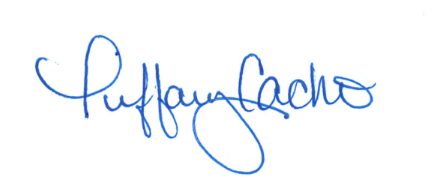 Tuffany Cacho